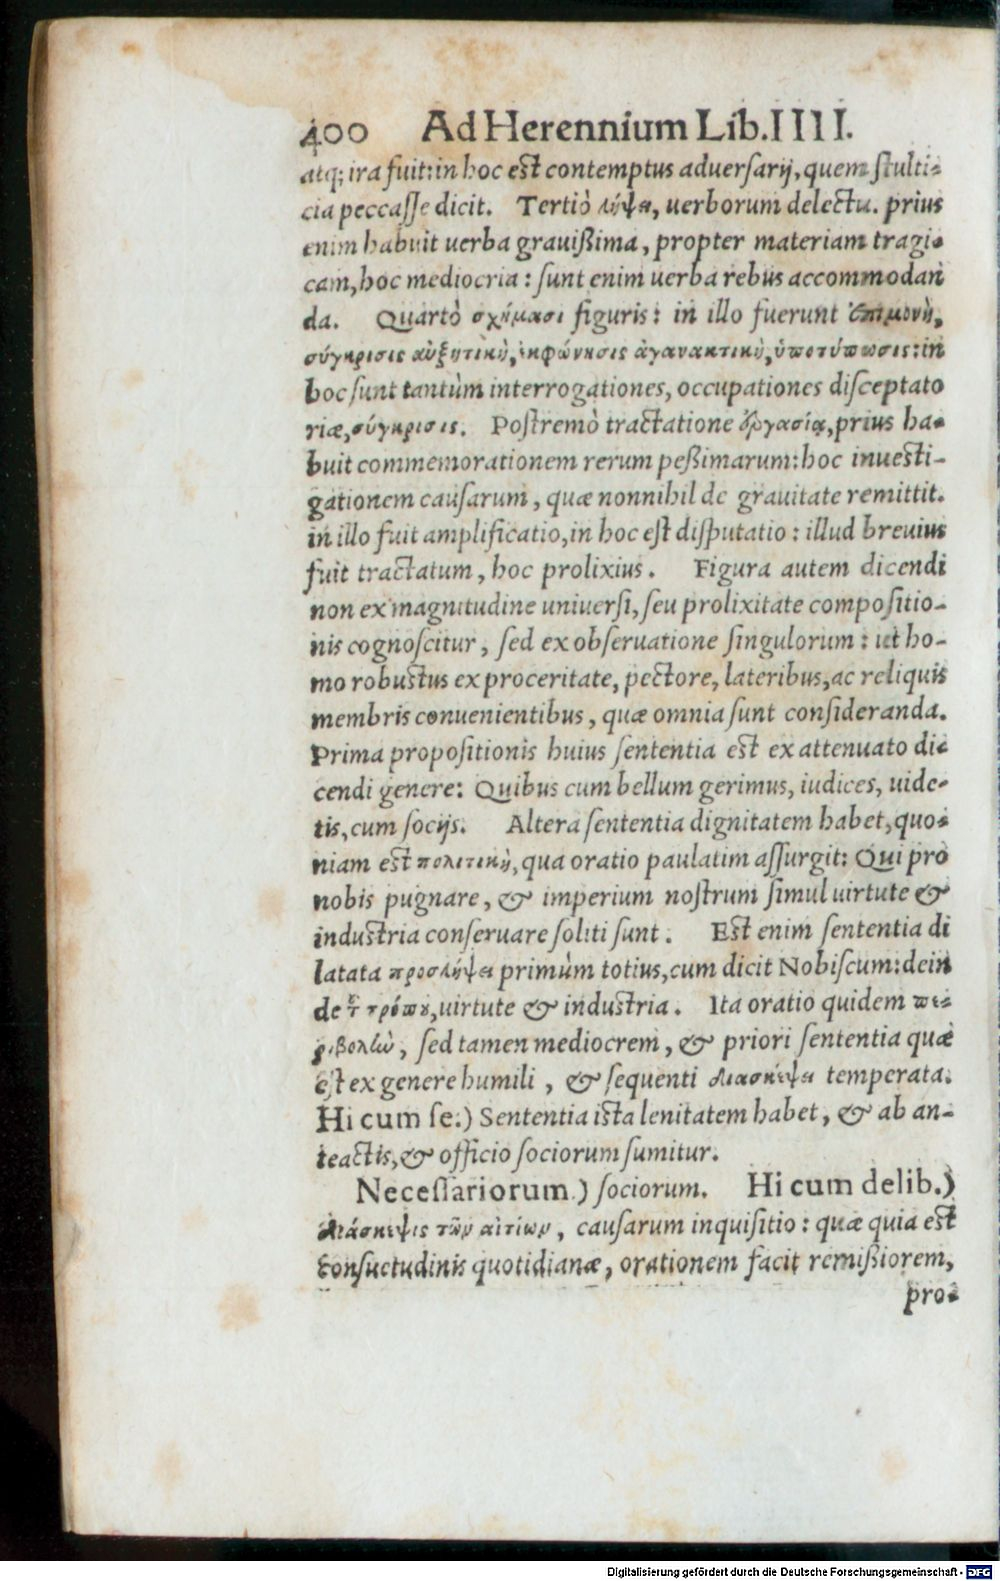 400 Ad Herennium Lib.IIII.
atq; ira fuit: in hoc est contemptus aduersarij, quem stulti-
cia peccasse dicit. Tertiò λήψει, uerborum delectu. prius
enim habuit uerba grauißima, propter materiam tragi-
cam, hoc mediocria: sunt enim uerba rebus accommodan
da. Quartò σχήμασι figuris: in illo fuerunt ἐπιμονὴ,
σύγκρισις αὐξητικὴ, ἐκφώνησις ἀγανακτικὴ, ὑποτύπωσις: in
hoc sunt tantùm interrogationes, occupationes disceptato
riæ, σύγκρισις. Postremò tractatione ἐργασίᾳ, prius ha-
buit commemorationem rerum peßimarum: hoc inuesti-
gationem causarum, quæ nonnihil de grauitate remittit.
in illo fuit amplificatio, in hoc est disputatio: illud breuius
fuit tractatum, hoc prolixius. Figura autem dicendi
non ex magnitudine uniuersi, seu prolixitate compositio-
nis cognoscitur, sed ex obseruatione singulorum: ut ho-
mo robustus ex proceritate, pectore, lateribus, ac reliquis
membris conuenientibus, quæ omnia sunt consideranda.
Prima propositionis huius sententia est ex attenuato di-
cendi genere: Quibus cum bellum gerimus, iudices, uide-
tis, cum socijs. Altera sententia dignitatem habet, quo-
niam est πολιτικὴ, qua oratio paulatim assurgit: Qui pro
nobis pugnare, & imperium nostrum simul uirtute &
industria conseruare soliti sunt. Est enim sententia di
latata προσλήψει primùm totius, cum dicit Nobiscum: dein
de τρόπου, uirtute & industria. Ita oratio quidem πε-
ριβολὼ, sed tamen mediocrem, & priori sententia quæ
est ex genere humili, & sequenti διασκέψει temperata.
Hi cum se.) Sententia ista lenitatem habet, & ab an-
teactis, & officio sociorum sumitur.
Necessariorum.) sociorum. Hi cum delib.)
διάσκεψις τῶν αἰτίων, causarum inquisitio: quæ quia est
consuetudinis quotidianæ, orationem facit remißiorem,
pro-
Digitalisierung gefördert durch die Deutsche Forschungsgemeinschaft - DFG